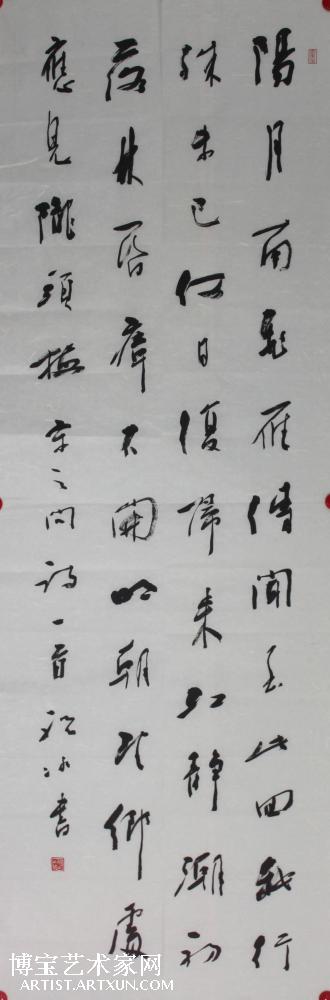 陽月南飛雁傳聞至此回我行
殊未已何日復歸來江靜潮初
落林昏瘴不開明朝望鄉處
應見隴頭梅 宋之問詩一首 書
博宝艺术家网
ARTIST.ARTXUN.COM